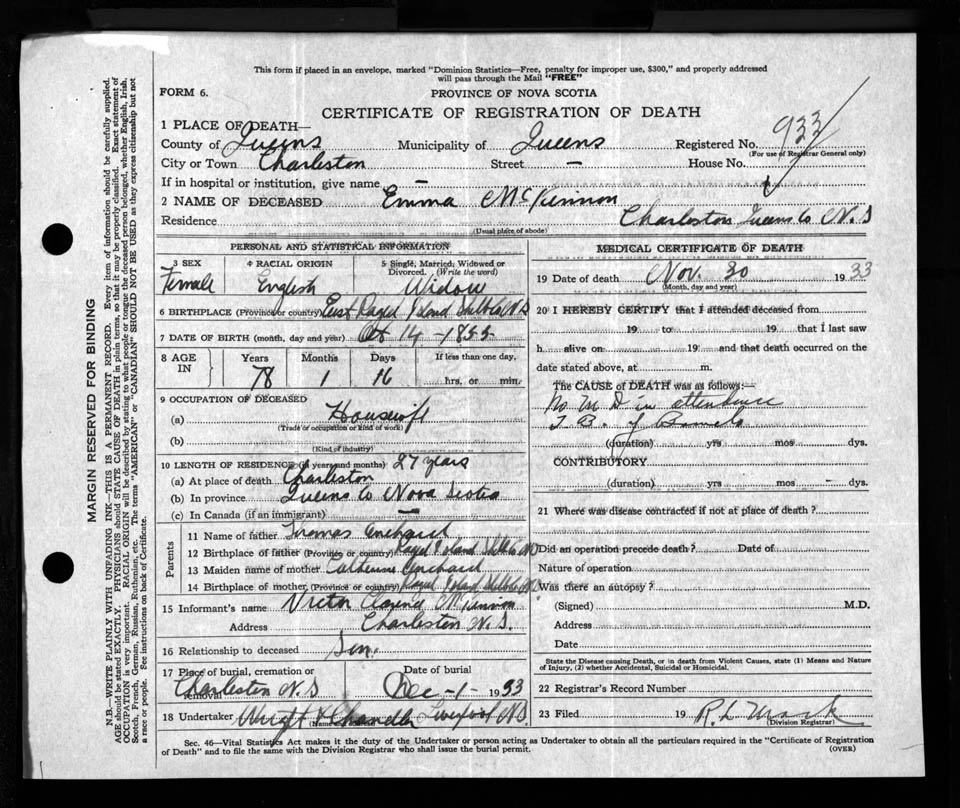 This form if placed in an envelope, marked "Dominion Statistics—Free, penalty for improper use, $300," and properly addressed
will pass through the Mail "FREE"
FORM 6.
PROVINCE OF NOVA SCOTIA
CERTIFICATE OF REGISTRATION OF DEATH
933
1 PLACE OF DEATH—
County of Queens Municipality of Queens Registered No.
(For use of Registrar General only)
City or Town Charleston Street — House No.
If in hospital or institution, give name —
2 NAME OF DECEASED Emma McKinnon
Residence Charleston Queens Co N.S
(Usual place of abode)
PERSONAL AND STATISTICAL INFORMATION
3 SEX 4 RACIAL ORIGIN 5 Single, Married, Widowed or Divorced. (Write the word)
Female English Widow
6 BIRTHPLACE (Province or country) East Island N S
7 DATE OF BIRTH (month, day and year) Oct 14 - 1855
8 AGE IN Years Months Days If less than one day,
78 1 16 hrs. or min.
9 OCCUPATION OF DECEASED
(a) Housewife
(Trade or occupation or kind of work)
(b)
(Kind of industry)
10 LENGTH OF RESIDENCE (in years and months) 27 years
(a) At place of death Charleston
(b) In province Queens Co Nova Scotia
(c) In Canada (if an immigrant) —
Parents
11 Name of father Thomas
12 Birthplace of father (Province or country) Island
13 Maiden name of mother Catherine
14 Birthplace of mother (Province or country) Island
15 Informant's name Victor McKinnon
Address Charleston N.S.
16 Relationship to deceased Son.
17 Place of burial, cremation or removal Date of burial
Charleston N.S Dec -1- 1933
18 Undertaker & Chandler Liverpool N.S.
MEDICAL CERTIFICATE OF DEATH
19 Date of death Nov. 30 1933
(Month, day and year)
20 I HEREBY CERTIFY that I attended deceased from
19 to 19 that I last saw
h alive on 19 and that death occurred on the
date stated above, at m.
The CAUSE of DEATH was as follows:
No M D in attendence
T. B. of
(duration) yrs mos dys.
CONTRIBUTORY
(duration) yrs. mos - dys.
21 Where was disease contracted if not at place of death?
Did an operation precede death? Date of
Nature of operation
Was there an autopsy?
(Signed) M.D.
Address
Date
State the Disease causing Death, or in death from Violent Causes, state (1) Means and Nature
of Injury, (2) whether Accidental, Suicidal or Homicidal.
22 Registrar's Record Number
23 Filed 19
(Division Registrar)
Sec. 46—Vital Statistics Act makes it the duty of the Undertaker or person acting as Undertaker to obtain all the particulars required in the "Certificate of Registration
of Death" and to file the same with the Division Registrar who shall issue the burial permit.
(OVER)
MARGIN RESERVED FOR BINDING
N.B.—WRITE PLAINLY WITH UNFADING INK—THIS IS A PERMANENT RECORD. Every item of information should be carefully supplied.
AGE should be stated EXACTLY. PHYSICIANS should STATE CAUSE OF DEATH in plain terms, so that it may be properly classified. Exact statement of
OCCUPATION is very important. RACIAL ORIGIN will be described by stating to what people or tongue the deceased person belonged, whether English, Irish,
Scotch, French, German, Russian, Ruthenian, etc. The terms "AMERICAN" or "CANADIAN" SHOULD NOT BE USED as they express citizenship but not
a race or people. See instructions on back of Certificate.